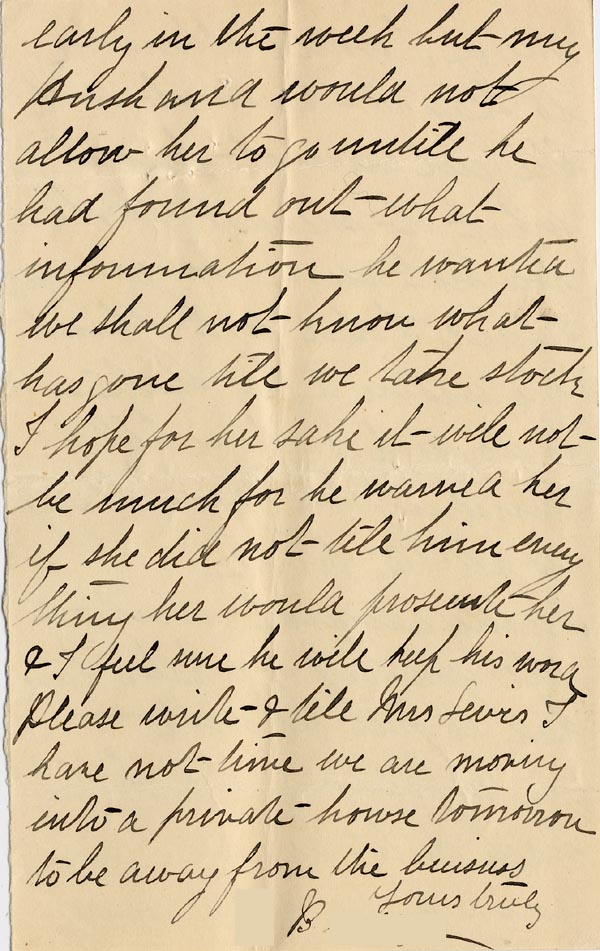 early in the week but my
Husband would not
allow her to go untill he
had found out what
information he wanted
we shall not know what
has gone till we take stock
I hope for her sake it will not
be much for he warned her
if she did not tell him every
thing her would prosecute her
& I feel sure he will keep his word
Please write & tell Mrs Lewis I
have not time we are moving
into a private house tomorrow
to be away from the buisness
Yours truly
B